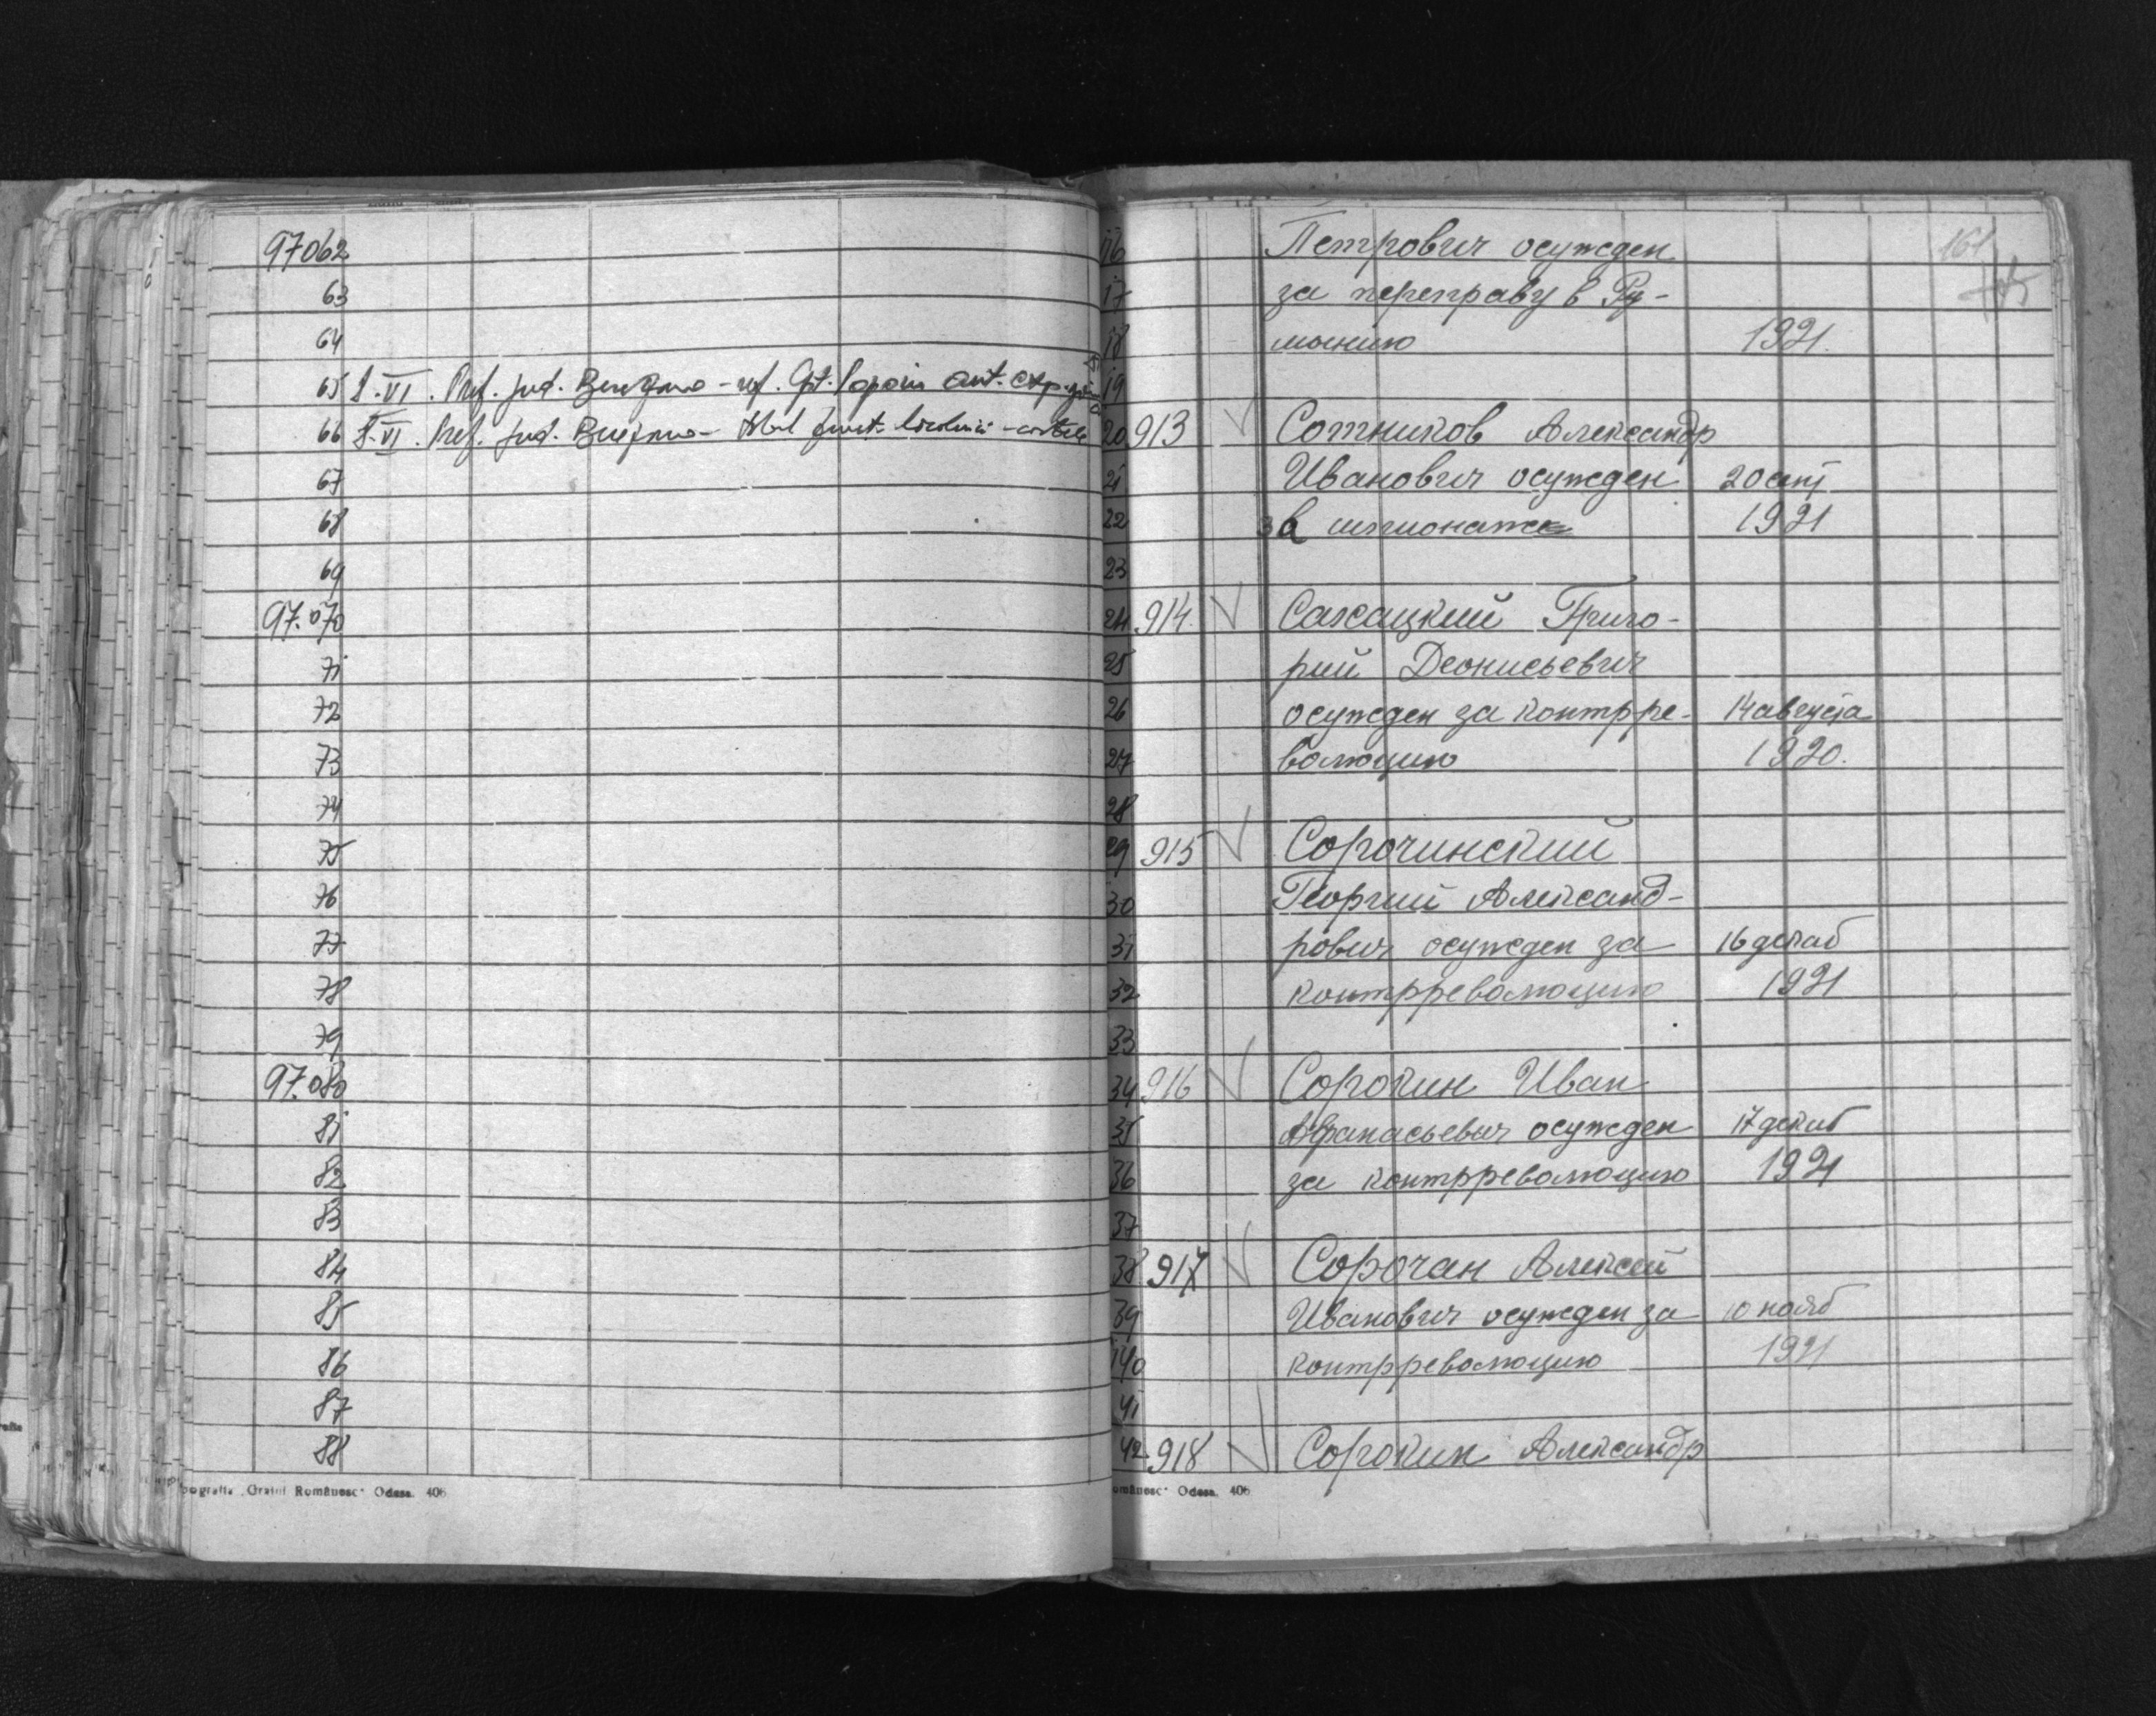 97062
63
64
65 S. VI. Pref. Jud.
66 S. VI. Pref. Jud.
67
68
69
97.070
71
72
73
74
75
76
77
78
79
97.080
81
82
83
84
85
86
87
88
Tipografia „Graiul Românesc" Odesa. 406
161
16 Петрович осужден
17 за переправу в Ру-
18 мынию 1921.
19
20 913 Сотников Александр
21 Иванович осужден 20 сент
22 за шпионаж 1921
23
24 914. Сакацкий Григо-
25 рий Деонисьевич
26 осужден за контрре- 14 августа
27 волюцию 1920.
28
29 915 Сорочинский
30 Георгий Александ-
31 рович осужден за 16 декаб
32 контрреволюцию 1921
33
34 916 Сорокин Иван
35 Афанасьевич осужден 17 декаб
36 за контрреволюцию 1921
37
38 917 Сорочан Алексей
39 Иванович осужден за 10 нояб
40 контрреволюцию 1921
41
42 918 Сорокин Александр
omânesc" Odesa. 406